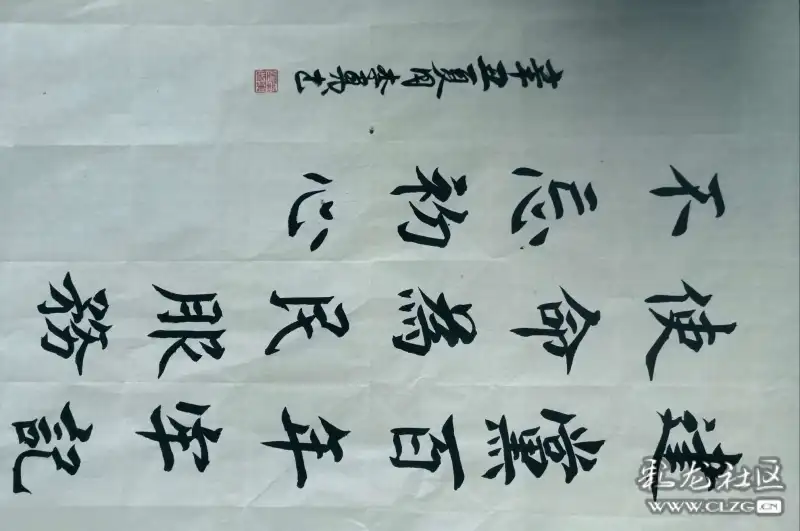 建黨百年牢記
使命為民服務
不忘初心
辛丑夏月李
彩龙社区
WWW.CLZG.CN